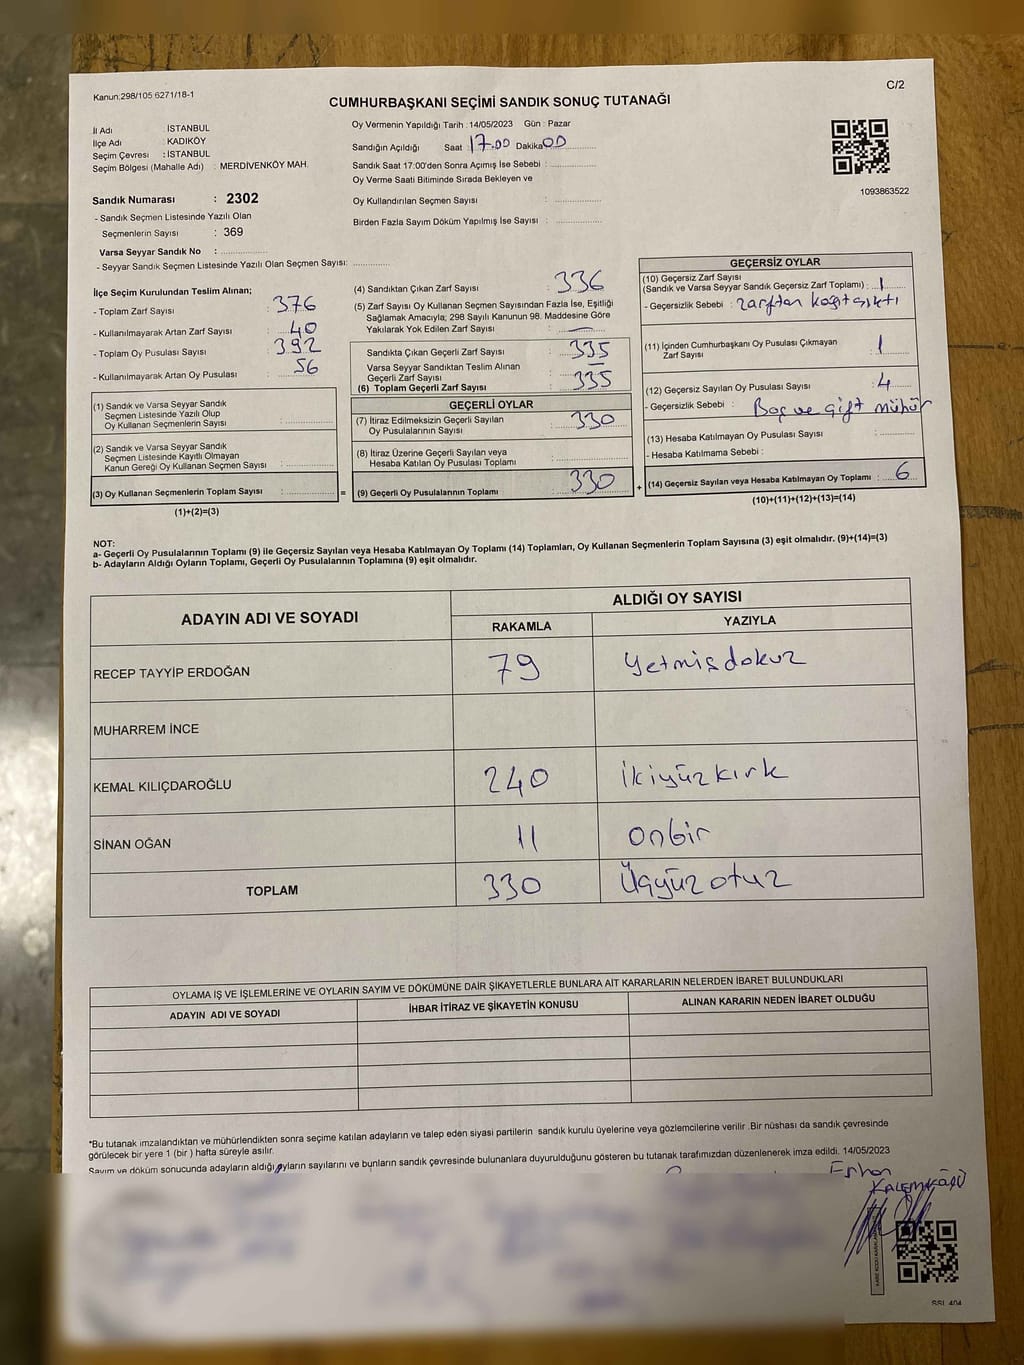 Kanun:298/105 6271/18-1
C/2
CUMHURBAŞKANI SEÇİMİ SANDIK SONUÇ TUTANAĞI
İl Adı : İSTANBUL
İlçe Adı : KADIKÖY
Seçim Çevresi : İSTANBUL
Seçim Bölgesi (Mahalle Adı) : MERDİVENKÖY MAH.
Sandık Numarası : 2302
- Sandık Seçmen Listesinde Yazılı Olan
Seçmenlerin Sayısı : 369
Varsa Seyyar Sandık No :
- Seyyar Sandık Seçmen Listesinde Yazılı Olan Seçmen Sayısı:
Oy Vermenin Yapıldığı Tarih : 14/05/2023 Gün : Pazar
Sandığın Açıldığı Saat 17.00 Dakika 00
Sandık Saat 17:00'den Sonra Açımış İse Sebebi :
Oy Verme Saati Bitiminde Sırada Bekleyen ve
Oy Kullandırılan Seçmen Sayısı :
Birden Fazla Sayım Döküm Yapılmış İse Sayısı :
1093863522
İlçe Seçim Kurulundan Teslim Alınan;
- Toplam Zarf Sayısı : 376
- Kullanılmayarak Artan Zarf Sayısı : 40
- Toplam Oy Pusulası Sayısı : 392
- Kullanılmayarak Artan Oy Pusulası : 56
(1) Sandık ve Varsa Seyyar Sandık
Seçmen Listesinde Yazılı Olup
Oy Kullanan Seçmenlerin Sayısı :
(2) Sandık ve Varsa Seyyar Sandık
Seçmen Listesinde Kayıtlı Olmayan
Kanun Gereği Oy Kullanan Seçmen Sayısı :
(3) Oy Kullanan Seçmenlerin Toplam Sayısı :
(1)+(2)=(3)
(4) Sandıktan Çıkan Zarf Sayısı : 336
(5) Zarf Sayısı Oy Kullanan Seçmen Sayısından Fazla İse, Eşitliği
Sağlamak Amacıyla; 298 Sayılı Kanunun 98. Maddesine Göre
Yakılarak Yok Edilen Zarf Sayısı : —
Sandıkta Çıkan Geçerli Zarf Sayısı : 335
Varsa Seyyar Sandıktan Teslim Alınan
Geçerli Zarf Sayısı : —
(6) Toplam Geçerli Zarf Sayısı : 335
GEÇERLİ OYLAR
(7) İtiraz Edilmeksizin Geçerli Sayılan
Oy Pusulalarının Sayısı : 330
(8) İtiraz Üzerine Geçerli Sayılan veya
Hesaba Katılan Oy Pusulası Toplamı :
= (9) Geçerli Oy Pusulalarının Toplamı : 330
GEÇERSİZ OYLAR
(10) Geçersiz Zarf Sayısı
(Sandık ve Varsa Seyyar Sandık Geçersiz Zarf Toplamı) : 1
- Geçersizlik Sebebi : zarftan kağıt çıktı
(11) İçinden Cumhurbaşkanı Oy Pusulası Çıkmayan
Zarf Sayısı : 1
(12) Geçersiz Sayılan Oy Pusulası Sayısı : 4
- Geçersizlik Sebebi : Boş ve çift mühür
(13) Hesaba Katılmayan Oy Pusulası Sayısı :
- Hesaba Katılmama Sebebi :
+ (14) Geçersiz Sayılan veya Hesaba Katılmayan Oy Toplamı : 6
(10)+(11)+(12)+(13)=(14)
NOT:
a- Geçerli Oy Pusulalarının Toplamı (9) ile Geçersiz Sayılan veya Hesaba Katılmayan Oy Toplamı (14) Toplamları, Oy Kullanan Seçmenlerin Toplam Sayısına (3) eşit olmalıdır. (9)+(14)=(3)
b- Adayların Aldığı Oyların Toplamı, Geçerli Oy Pusulalarının Toplamına (9) eşit olmalıdır.
ADAYIN ADI VE SOYADI
ALDIĞI OY SAYISI
RAKAMLA YAZIYLA
RECEP TAYYİP ERDOĞAN 79 yetmişdokuz
MUHARREM İNCE
KEMAL KILIÇDAROĞLU 240 ikiyüzkırk
SİNAN OĞAN 11 onbir
TOPLAM 330 Üçyüzotuz
OYLAMA İŞ VE İŞLEMLERİNE VE OYLARIN SAYIM VE DÖKÜMÜNE DAİR ŞİKAYETLERLE BUNLARA AİT KARARLARIN NELERDEN İBARET BULUNDUKLARI
ADAYIN ADI VE SOYADI İHBAR İTİRAZ VE ŞİKAYETİN KONUSU ALINAN KARARIN NEDEN İBARET OLDUĞU
*Bu tutanak imzalandıktan ve mühürlendikten sonra seçime katılan adayların ve talep eden siyasi partilerin sandık kurulu üyelerine veya gözlemcilerine verilir .Bir nüshası da sandık çevresinde
görülecek bir yere 1 (bir ) hafta süreyle asılır.
Sayım ve döküm sonucunda adayların aldığı oyların sayılarını ve bunların sandık çevresinde bulunanlara duyurulduğunu gösteren bu tutanak tarafımızdan düzenlenerek imza edildi. 14/05/2023
SSI 404